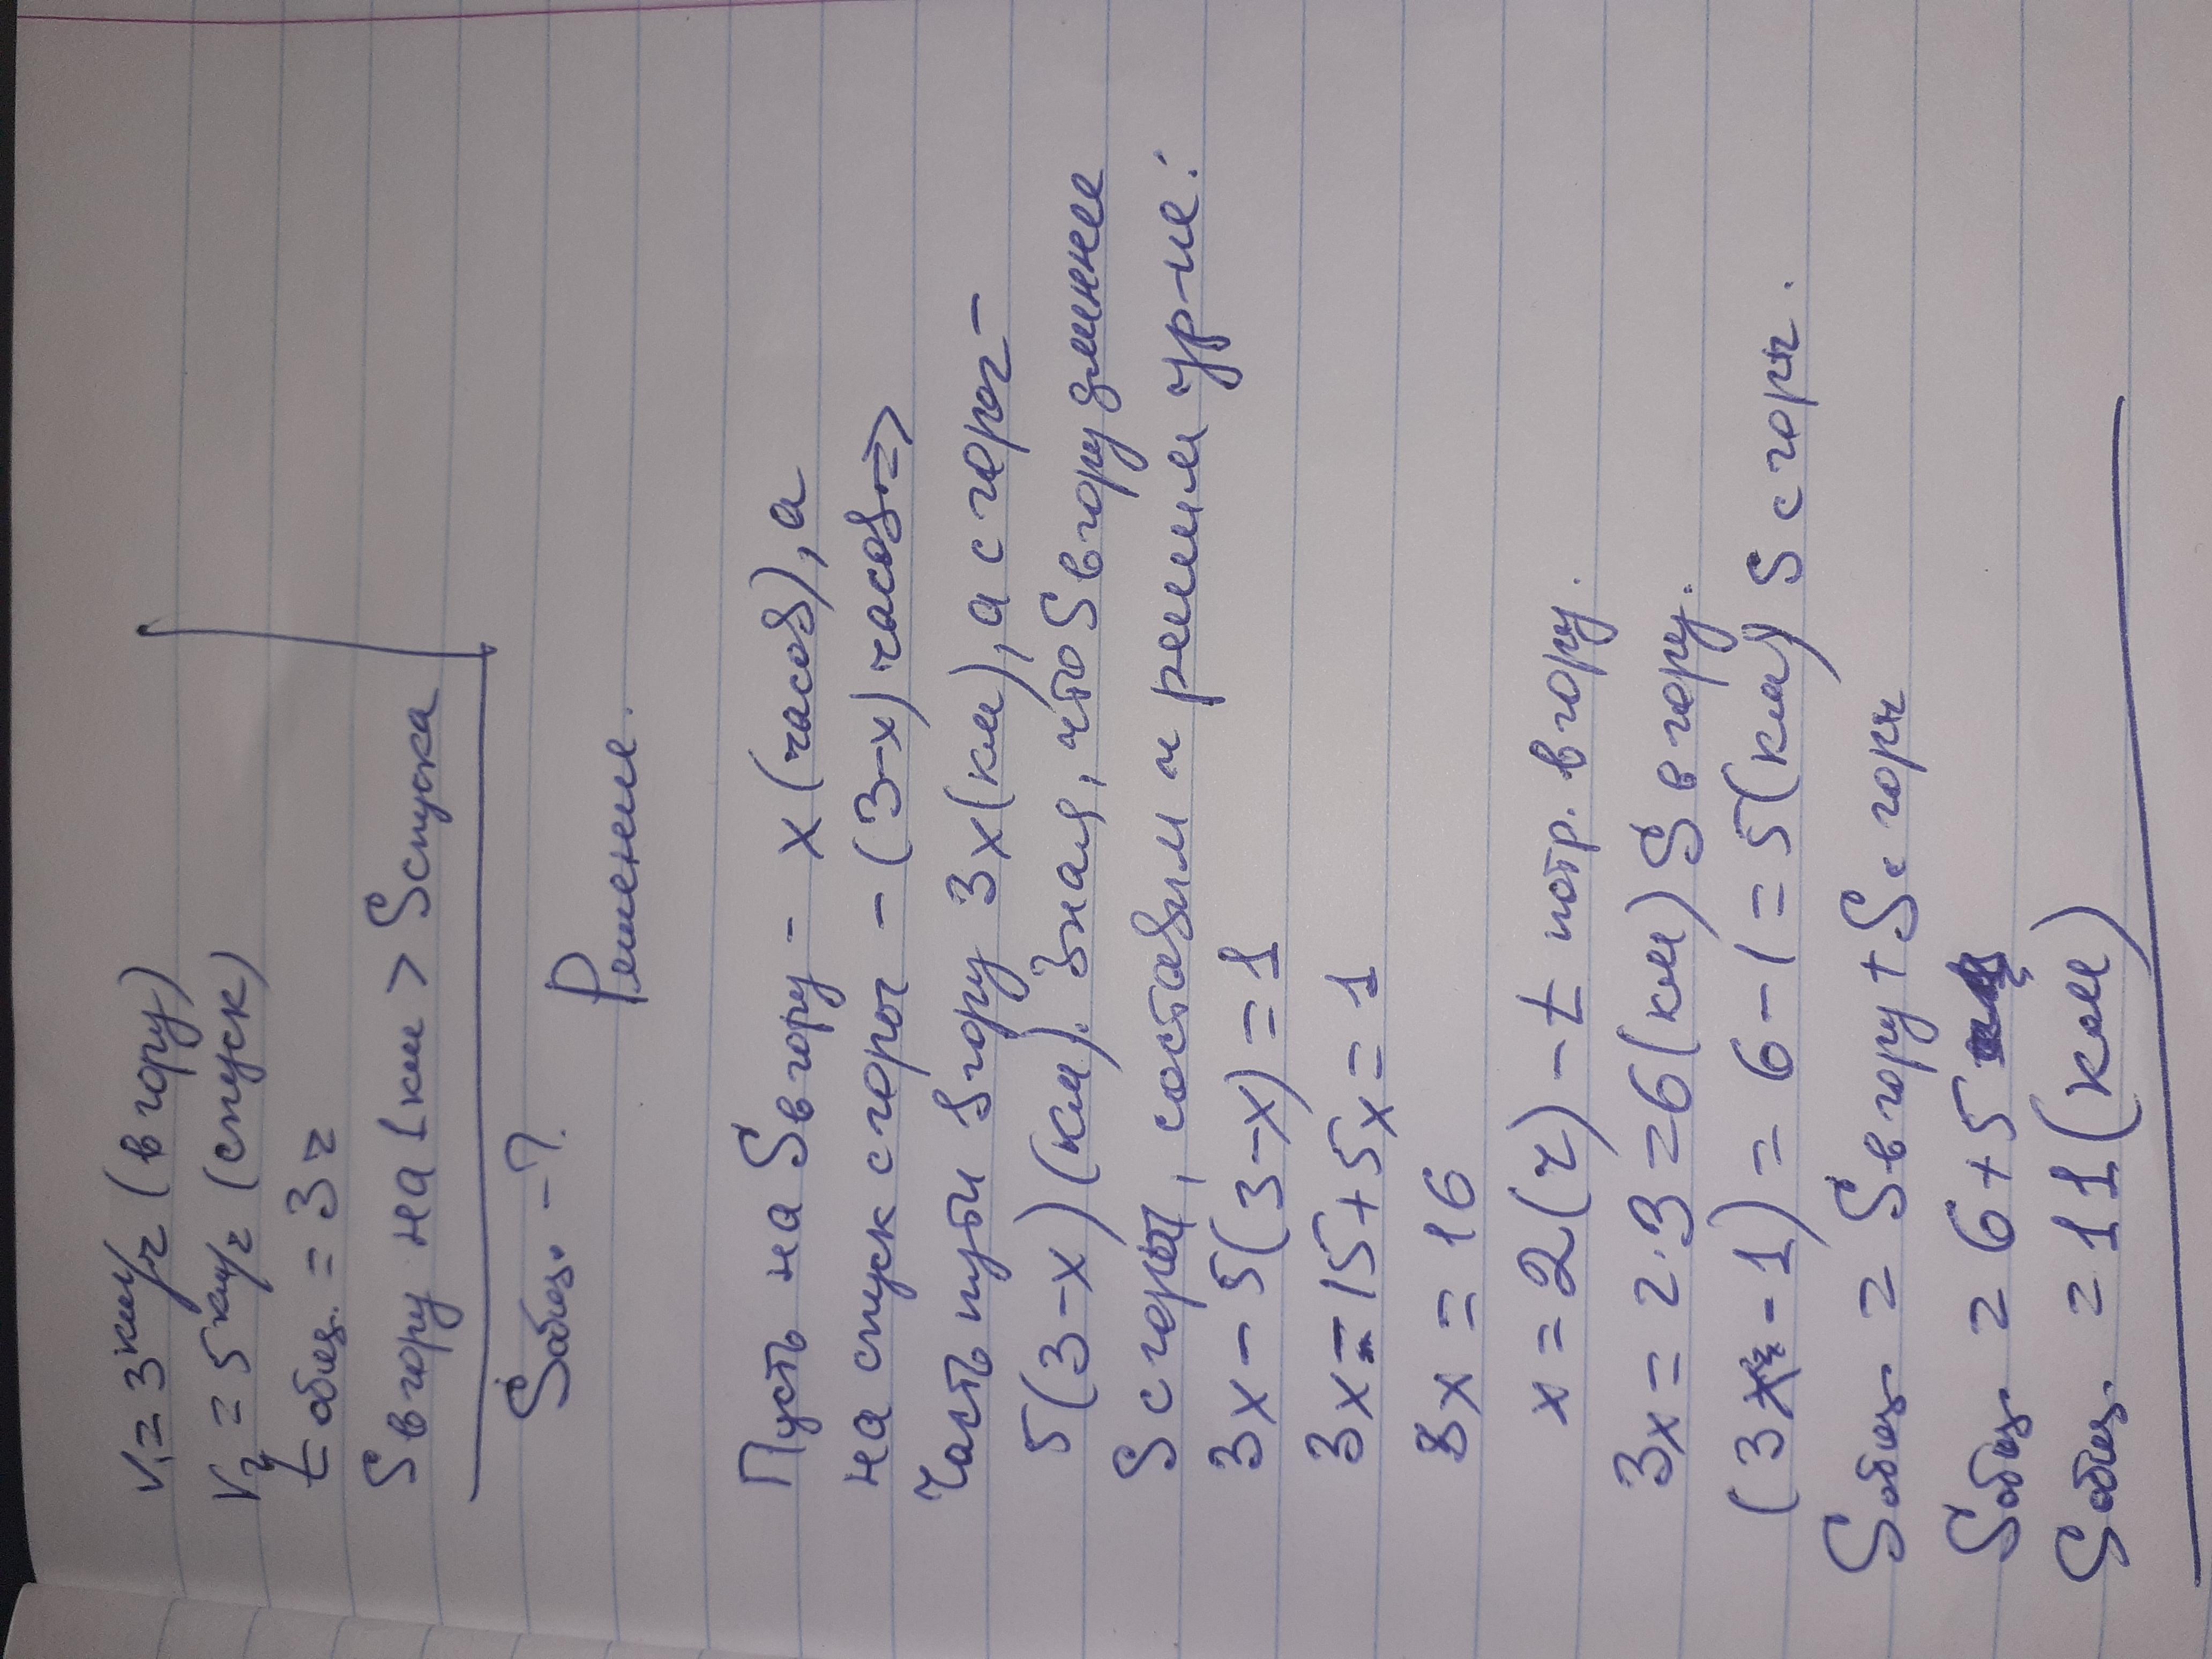 V₁ = 3 км/ч (в гору)
V₂ = 5 км/ч (спуск)
t общ. = 3ч
S в гору на 1 км > S спуска
S общ. - ?
Решение.
Пусть на S в гору - x (часов), а
на спуск с горы - (3-x) часов =>
Часть пути в гору 3x (км), а с горы -
5(3-x) (км). Зная, что S в гору длиннее
S с горы, составим и решим ур-ие:
3x - 5(3-x) = 1
3x - 15 + 5x = 1
8x = 16
x = 2 (ч) - t потр. в гору.
3x = 2·3 = 6 (км) S в гору.
(3x - 1) = 6 - 1 = 5 (км) S с горы.
S общ. = S в гору + S с горы
S общ. = 6 + 5
S общ. = 11 (км)